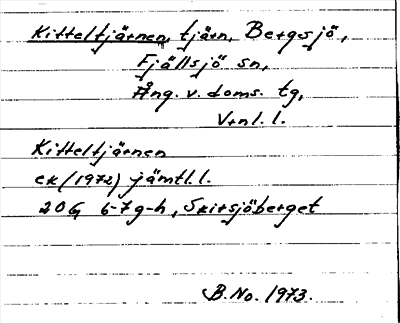 Kitteltjärnen, tjärn, Bergsjö,
Fjällsjö sn,
Ång. v. doms. tg,
Vrnl. l.
Kitteltjärnen
ek (1972) jämtl. l.
20G 6-7 g-h, Skirsjöberget
B. No. 1973.